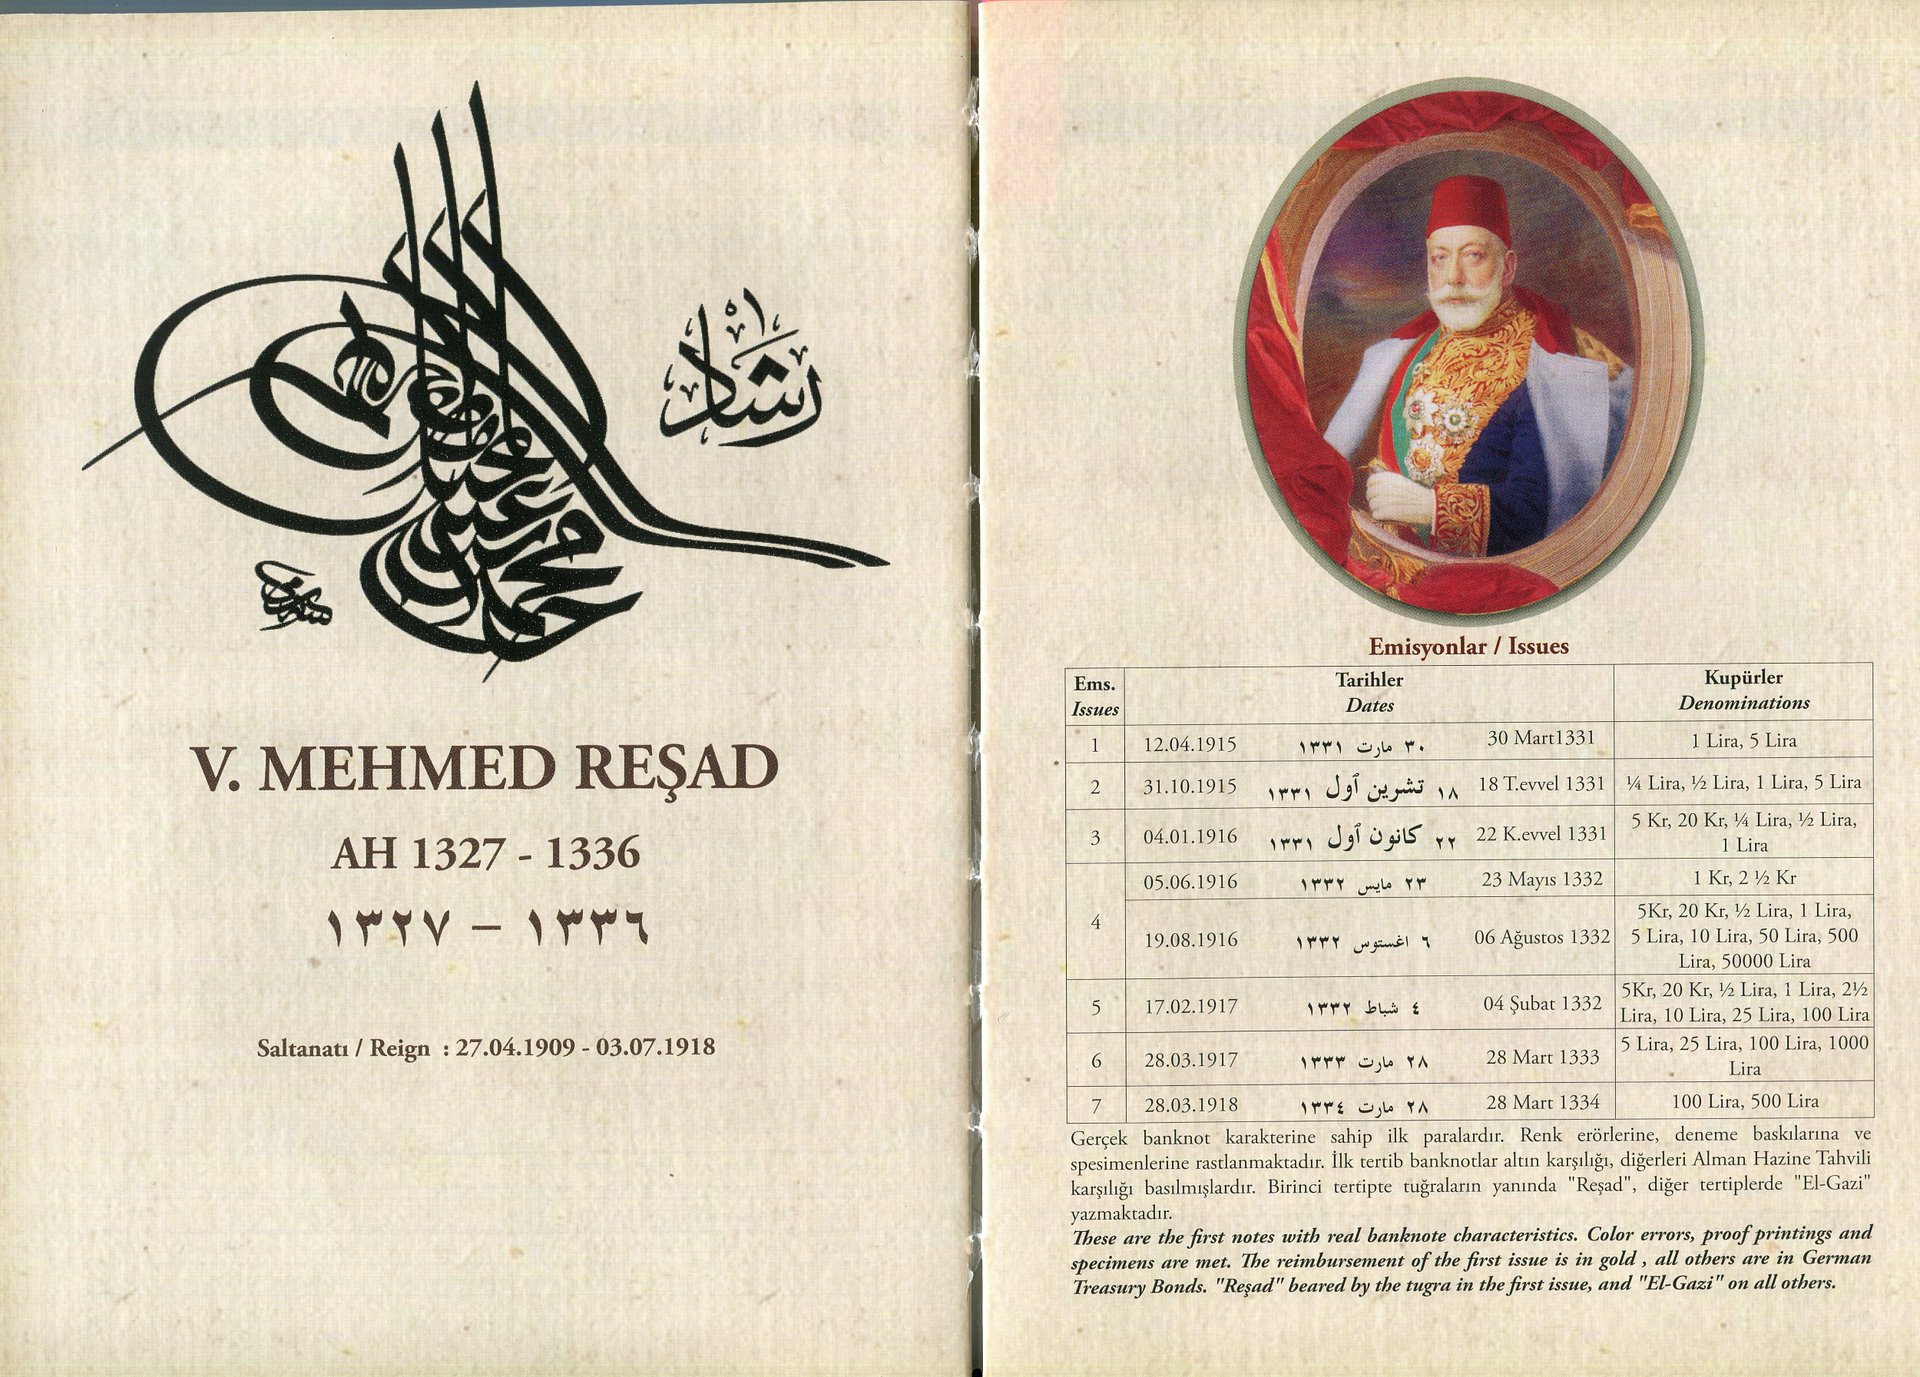 رشاد
V. MEHMED REŞAD
AH 1327 - 1336
١٣٢٧ – ١٣٣٦
Saltanatı / Reign : 27.04.1909 - 03.07.1918
Emisyonlar / Issues
Ems. Tarihler Kupürler
Issues Dates Denominations
1 12.04.1915 ٣٠ مارت ١٣٣١ 30 Mart1331 1 Lira, 5 Lira
2 31.10.1915 ١٨ تشرين آول ١٣٣١ 18 T.evvel 1331 ¼ Lira, ½ Lira, 1 Lira, 5 Lira
3 04.01.1916 ٢٢ كانون آول ١٣٣١ 22 K.evvel 1331 5 Kr, 20 Kr, ¼ Lira, ½ Lira,
1 Lira
4 05.06.1916 ٢٣ مايس ١٣٣٢ 23 Mayıs 1332 1 Kr, 2 ½ Kr
19.08.1916 ٦ اغستوس ١٣٣٢ 06 Ağustos 1332 5Kr, 20 Kr, ½ Lira, 1 Lira,
5 Lira, 10 Lira, 50 Lira, 500
Lira, 50000 Lira
5 17.02.1917 ٤ شباط ١٣٣٢ 04 Şubat 1332 5Kr, 20 Kr, ½ Lira, 1 Lira, 2½
Lira, 10 Lira, 25 Lira, 100 Lira
6 28.03.1917 ٢٨ مارت ١٣٣٣ 28 Mart 1333 5 Lira, 25 Lira, 100 Lira, 1000
Lira
7 28.03.1918 ٢٨ مارت ١٣٣٤ 28 Mart 1334 100 Lira, 500 Lira
Gerçek banknot karakterine sahip ilk paralardır. Renk erörlerine, deneme baskılarına ve
spesimenlerine rastlanmaktadır. İlk tertib banknotlar altın karşılığı, diğerleri Alman Hazine Tahvili
karşılığı basılmışlardır. Birinci tertipte tuğraların yanında "Reşad", diğer tertiplerde "El-Gazi"
yazmaktadır.
These are the first notes with real banknote characteristics. Color errors, proof printings and
specimens are met. The reimbursement of the first issue is in gold , all others are in German
Treasury Bonds. "Reşad" beared by the tugra in the first issue, and "El-Gazi" on all others.